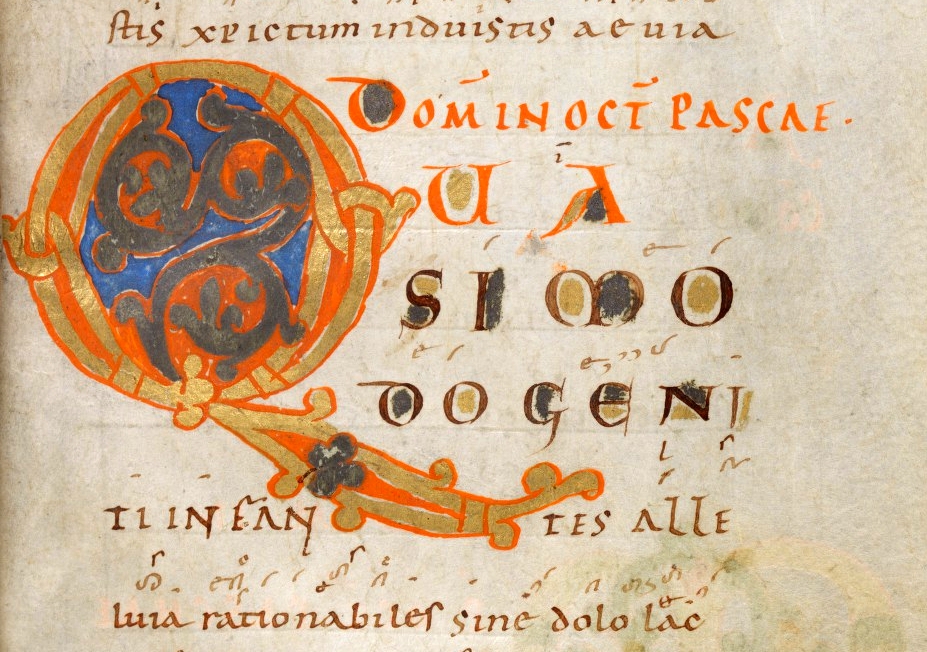 stis xpictum induistis aeuia
DOMIN OCT PASCAE.
QUA
SI MO
DO GENI
TI INFAN TES ALLE
luia rationabiles sine dolo lac